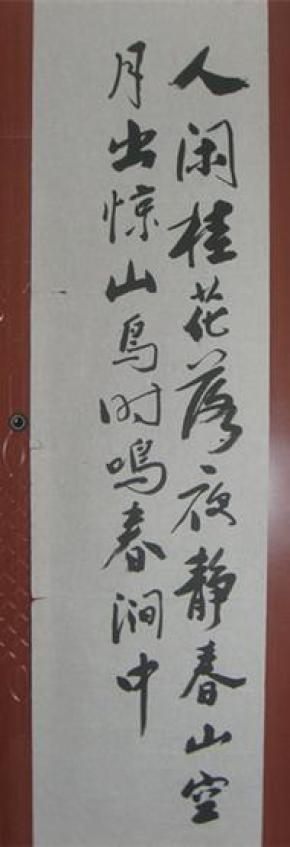 人闲桂花落夜静春山空
月出惊山鸟时鸣春涧中